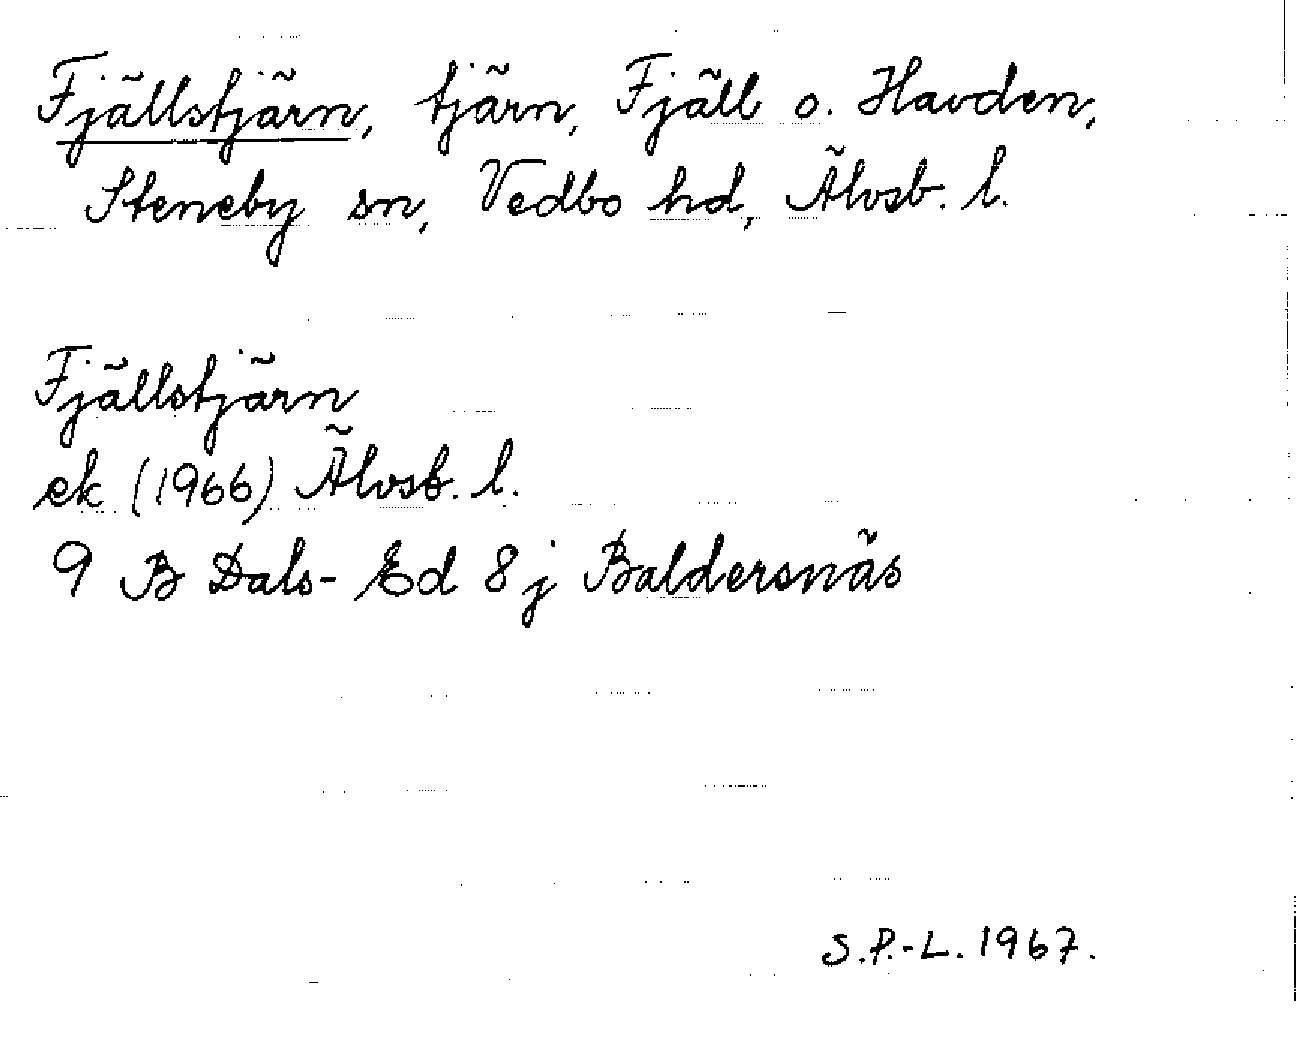 Fjällstjärn, tjärn, Fjäll o. Havden,
Steneby sn, Vedbo hd, Älvsb. l.
Fjällstjärn
ek (1966) Älvsb. l.
9 B Dals-Ed 8j Baldersnäs
S.P.-L. 1967.